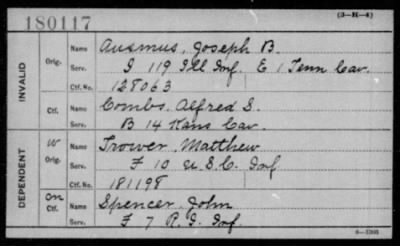 180117 (3-H-4)
INVALID
Orig. Name Ausmus, Joseph B.
Serv. I 119 Ill Inf. E 1 Tenn Cav.
Ctf. No. 128063
Ctf. Name Combs, Alfred S.
Serv. B 14 Kans Cav.
DEPENDENT
W Orig. Name Trower, Matthew
Serv. F 10 U.S.C. Inf
Ctf. No. 181198
On Ctf. Name Spencer, John
Serv. F 7 R.I. Inf.